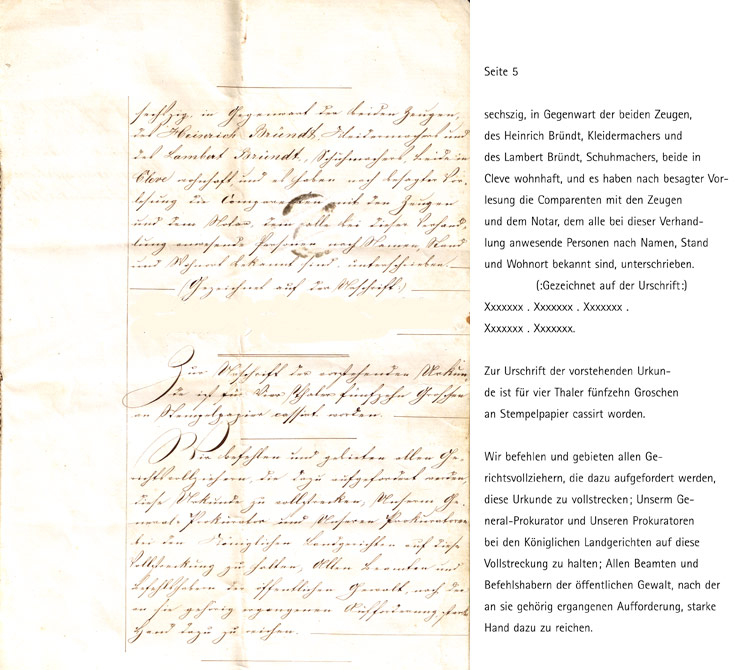 sechszig, in Gegenwart der beiden Zeugen,
des Heinrich Bründt, Kleidermachers und
des Lambert Bründt, Schuhmachers, beide in
Cleve wohnhaft und es haben nach besagter Vor-
lesung die Comparenten mit den Zeugen
und dem Notar, dem alle bei dieser Verhand-
lung anwesende Personen nach Namen, Stand
und Wohnort bekannt sind, unterschrieben.
(Gezeichnet auf der Urschrift:)
Zur Urschrift der vorstehenden Urkun-
de ist für vier Thaler fünfzehn Groschen
an Stempelpapier cassirt worden.
Wir befehlen und gebieten allen Ge-
richtsvollziehern, die dazu aufgefordert werden,
diese Urkunde zu vollstrecken, Unserm Ge-
neral-Prokurator und Unseren Prokuratoren
bei den Königlichen Landgerichten auf diese
Vollstreckung zu halten, Allen Beamten und
Befehlshabern der öffentlichen Gewalt, nach der
an sie gehörig ergangenen Aufforderung, starke
Hand dazu zu reichen.
Seite 5
sechszig, in Gegenwart der beiden Zeugen,
des Heinrich Bründt, Kleidermachers und
des Lambert Bründt, Schuhmachers, beide in
Cleve wohnhaft, und es haben nach besagter Vor-
lesung die Comparenten mit den Zeugen
und dem Notar, dem alle bei dieser Verhand-
lung anwesende Personen nach Namen, Stand
und Wohnort bekannt sind, unterschrieben.
(:Gezeichnet auf der Urschrift:)
Xxxxxxx . Xxxxxxx . Xxxxxxx .
Xxxxxxx . Xxxxxxx.
Zur Urschrift der vorstehenden Urkun-
de ist für vier Thaler fünfzehn Groschen
an Stempelpapier cassirt worden.
Wir befehlen und gebieten allen Ge-
richtsvollziehern, die dazu aufgefordert werden,
diese Urkunde zu vollstrecken; Unserm Ge-
neral-Prokurator und Unseren Prokuratoren
bei den Königlichen Landgerichten auf diese
Vollstreckung zu halten; Allen Beamten und
Befehlshabern der öffentlichen Gewalt, nach der
an sie gehörig ergangenen Aufforderung, starke
Hand dazu zu reichen.